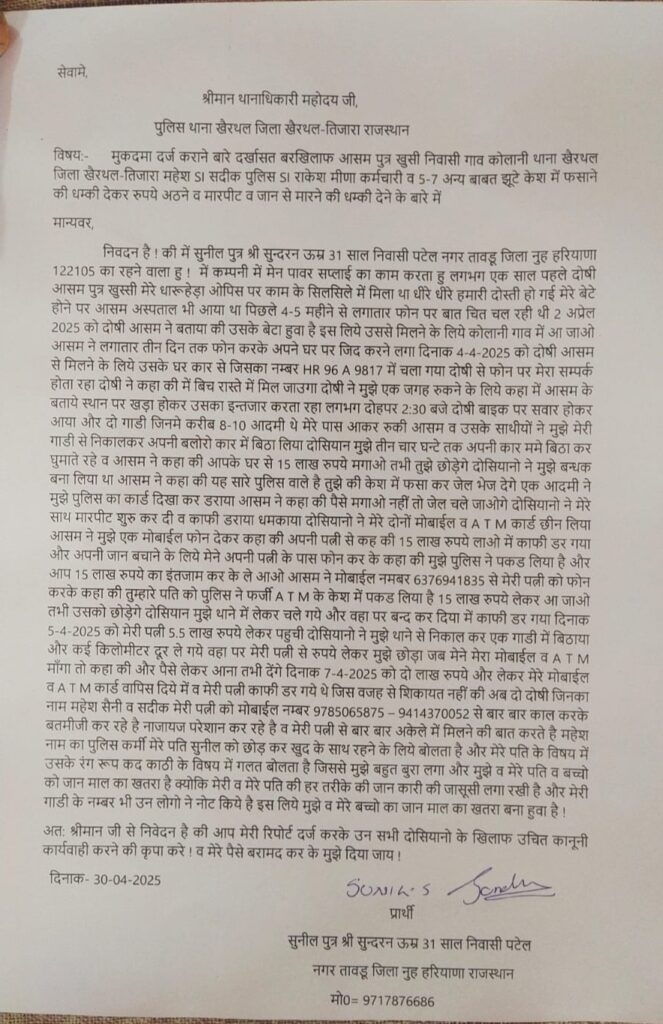 सेवामे,
श्रीमान थानाधिकारी महोदय जी,
पुलिस थाना खैरथल जिला खैरथल-तिजारा राजस्थान
विषय:- मुकदमा दर्ज कराने बारे दर्खासत बरखिलाफ आसम पुत्र खुसी निवासी गाव कोलानी थाना खैरथल
जिला खैरथल-तिजारा महेश SI सदीक पुलिस SI राकेश मीणा कर्मचारी व 5-7 अन्य बाबत झूटे केश में फसाने
की धम्की देकर रुपये अठने व मारपीट व जान से मारने की धम्की देने के बारे में
मान्यवर,
निवदन है ! की में सुनील पुत्र श्री सुन्दरन ऊम्र 31 साल निवासी पटेल नगर तावडू जिला नुह हरियाणा
122105 का रहने वाला हु ! में कम्पनी में मेन पावर सप्लाई का काम करता हु लगभग एक साल पहले दोषी
आसम पुत्र खुस्सी मेरे धारूहेड़ा ओपिस पर काम के सिलसिले में मिला था धीरे धीरे हमारी दोस्ती हो गई मेरे बेटे
होने पर आसम अस्पताल भी आया था पिछले 4-5 महीने से लगातार फोन पर बात चित चल रही थी 2 अप्रेल
2025 को दोषी आसम ने बताया की उसके बेटा हुवा है इस लिये उससे मिलने के लिये कोलानी गाव में आ जाओ
आसम ने लगातार तीन दिन तक फोन करके अपने घर पर जिद करने लगा दिनाक 4-4-2025 को दोषी आसम
से मिलने के लिये उसके घर कार से जिसका नम्बर HR 96 A 9817 में चला गया दोषी से फोन पर मेरा सम्पर्क
होता रहा दोषी ने कहा की में बिच रास्ते में मिल जाउगा दोषी ने मुझे एक जगह रुकने के लिये कहा में आसम के
बताये स्थान पर खड़ा होकर उसका इन्तजार करता रहा लगभग दोहपर 2:30 बजे दोषी बाइक पर सवार होकर
आया और दो गाडी जिनमे करीब 8-10 आदमी थे मेरे पास आकर रुकी आसम व उसके साथीयों ने मुझे मेरी
गाडी से निकालकर अपनी बलोरो कार में बिठा लिया दोसियान मुझे तीन चार घन्टे तक अपनी कार ममे बिठा कर
घुमाते रहे व आसम ने कहा की आपके घर से 15 लाख रुपये मगाओ तभी तुझे छोड़ेगे दोसियानो ने मुझे बन्धक
बना लिया था आसम ने कहा की यह सारे पुलिस वाले है तुझे की केश में फसा कर जेल भेज देगे एक आदमी ने
मुझे पुलिस का कार्ड दिखा कर डराया आसम ने कहा की पैसे मगाओ नहीं तो जेल चले जाओगे दोसियानो ने मेरे
साथ मारपीट शुरु कर दी व काफी डराया धमकाया दोसियानो ने मेरे दोनों मोबाईल व A T M कार्ड छीन लिया
आसम ने मुझे एक मोबाईल फोन देकर कहा की अपनी पत्नी से कह की 15 लाख रुपये लाओ में काफी डर गया
और अपनी जान बचाने के लिये मेने अपनी पत्नी के पास फोन कर के कहा की मुझे पुलिस ने पकड लिया है और
आप 15 लाख रुपये का इंतजाम कर के ले आओ आसम ने मोबाईल नमबर 6376941835 से मेरी पत्नी को फोन
करके कहा की तुम्हारे पति को पुलिस ने फर्जी A T M के केश में पकड लिया है 15 लाख रुपये लेकर आ जाओ
तभी उसको छोड़ेगे दोसियान मुझे थाने में लेकर चले गये और वहा पर बन्द कर दिया में काफी डर गया दिनाक
5-4-2025 को मेरी पत्नी 5.5 लाख रुपये लेकर पहुची दोसियानो ने मुझे थाने से निकाल कर एक गाडी में बिठाया
और कई किलोमीटर दूर ले गये वहा पर मेरी पत्नी से रुपये लेकर मुझे छोड़ा जब मेने मेरा मोबाईल व A T M
माँगा तो कहा की और पैसे लेकर आना तभी देंगे दिनाक 7-4-2025 को दो लाख रुपये और लेकर मेरे मोबाईल
व A T M कार्ड वापिस दिये में व मेरी पत्नी काफी डर गये थे जिस वजह से शिकायत नहीं की अब दो दोषी जिनका
नाम महेश सैनी व सदीक मेरी पत्नी को मोबाईल नम्बर 9785065875 – 9414370052 से बार बार काल करके
बतमीजी कर रहे है नाजायज परेशान कर रहे है व मेरी पत्नी से बार बार अकेले में मिलने की बात करते है महेश
नाम का पुलिस कर्मी मेरे पति सुनील को छोड़ कर खुद के साथ रहने के लिये बोलता है और मेरे पति के विषय में
उसके रंग रूप कद काठी के विषय में गलत बोलता है जिससे मुझे बहुत बुरा लगा और मुझे व मेरे पति व बच्चो
को जान माल का खतरा है क्योकि मेरी व मेरे पति की हर तरीके की जान कारी की जासूसी लगा रखी है और मेरी
गाडी के नम्बर भी उन लोगो ने नोट किये है इस लिये मुझे व मेरे बच्चो का जान माल का खतरा बना हुवा है !
अत: श्रीमान जी से निवेदन है की आप मेरी रिपोर्ट दर्ज करके उन सभी दोसियानो के खिलाफ उचित कानूनी
कार्यवाही करने की कृपा करे ! व मेरे पैसे बरामद कर के मुझे दिया जाय !
दिनाक- 30-04-2025
SUNIL-S
प्रार्थी
सुनील पुत्र श्री सुन्दरन ऊम्र 31 साल निवासी पटेल
नगर तावडू जिला नुह हरियाणा राजस्थान
मो0= 9717876686